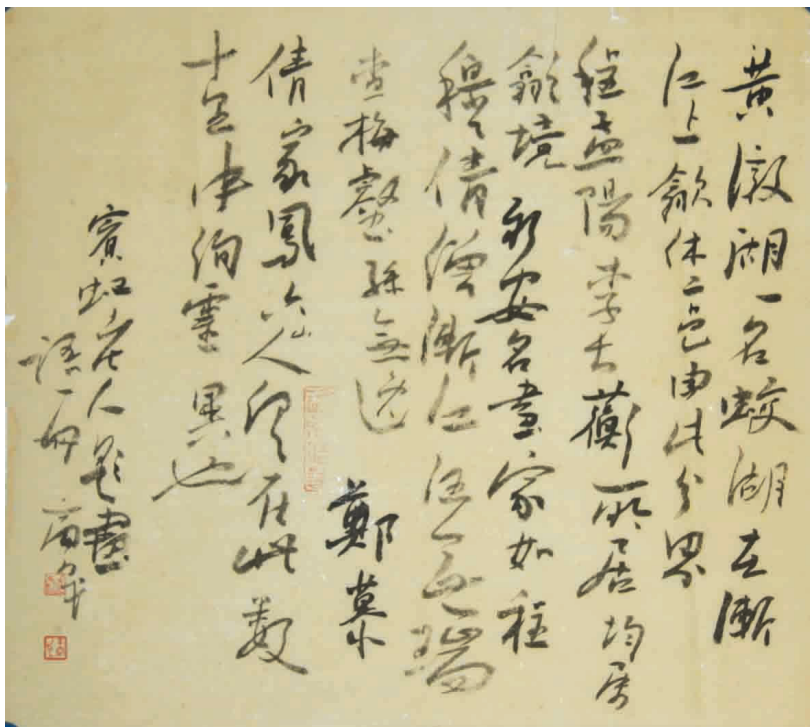 黃潡湖一名蛟湖在漸
江上歙休二邑由此分界
程孟陽李古蘅所居均屬
歙境 新安名畫家如程
穆倩僧漸江汪無瑞
查梅壑孫無逸 鄭慕
倩家鳳六山人皆在此數
十里中徇靈異也
賓虹老人題畫
語一節